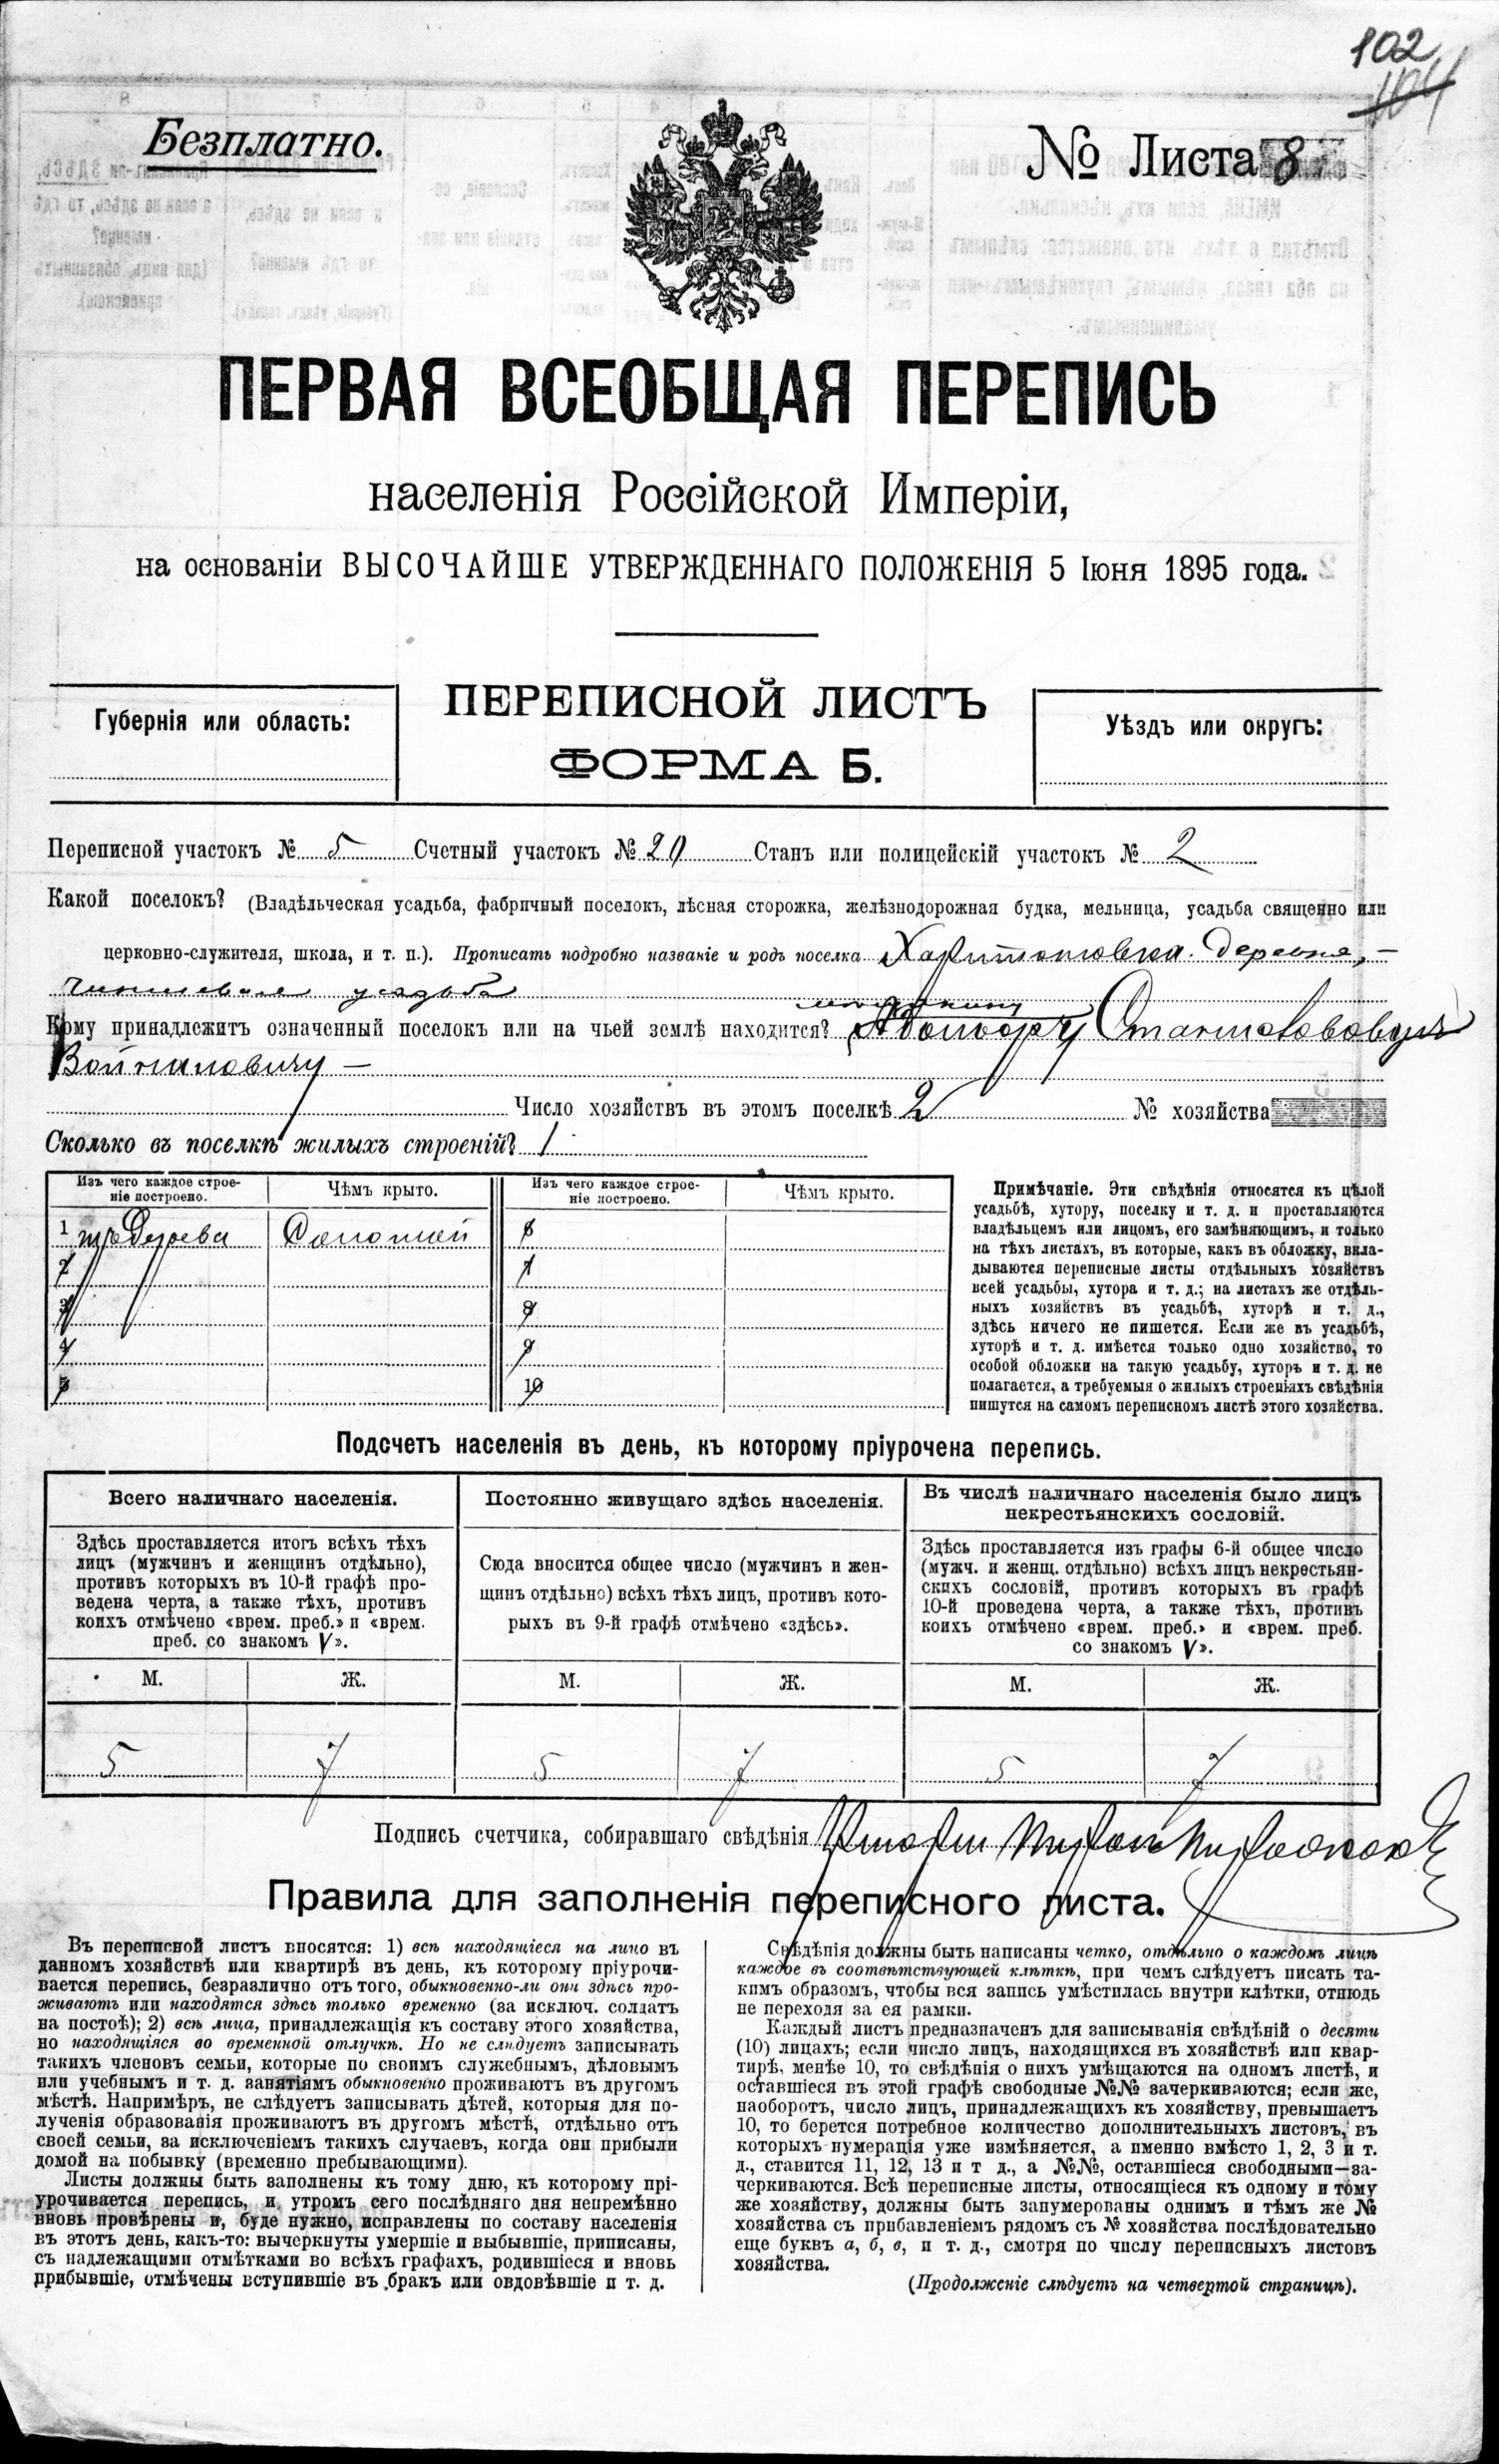 102
104
Безплатно.
№ Листа 8
ПЕРВАЯ ВСЕОБЩАЯ ПЕРЕПИСЬ
населенія Россійской Имперіи,
на основаніи ВЫСОЧАЙШЕ УТВЕРЖДЕННАГО ПОЛОЖЕНІЯ 5 Іюня 1895 года.
Губернія или область:
ПЕРЕПИСНОЙ ЛИСТЪ
ФОРМА Б.
Уѣздъ или округъ:
Переписной участокъ № 5 Счетный участокъ № 20 Станъ или полицейскій участокъ № 2
Какой поселокъ? (Владѣльческая усадьба, фабричный поселокъ, лѣсная сторожка, желѣзнодорожная будка, мельница, усадьба священно или
церковно-служителя, школа, и т. п.). Прописать подробно названіе и родъ поселка Харитоновка деревня,
усадьба
Кому принадлежитъ означенный поселокъ или на чьей землѣ находится? Станиславовичу
Войниловичу
Число хозяйствъ въ этомъ поселкѣ 2 № хозяйства
Сколько въ поселкѣ жилыхъ строеній? 1
Изъ чего каждое строе-
ніе построено.
Чѣмъ крыто.
Изъ чего каждое строе-
ніе построено.
Чѣмъ крыто.
1 изъ дерева Соломой 6
2 7
3 8
4 9
5 10
Примѣчаніе. Эти свѣдѣнія относятся къ цѣлой
усадьбѣ, хутору, поселку и т. д. и проставляются
владѣльцемъ или лицомъ, его замѣняющимъ, и только
на тѣхъ листахъ, въ которые, какъ въ обложку, вкла-
дываются переписные листы отдѣльныхъ хозяйствъ
всей усадьбы, хутора и т. д.; на листахъ же отдѣль-
ныхъ хозяйствъ въ усадьбѣ, хуторѣ и т. д.,
здѣсь ничего не пишется. Если же въ усадьбѣ,
хуторѣ и т. д. имѣется только одно хозяйство, то
особой обложки на такую усадьбу, хуторъ и т. д. не
полагается, а требуемыя о жилыхъ строеніяхъ свѣдѣнія
пишутся на самомъ переписномъ листѣ этого хозяйства.
Подсчетъ населенія въ день, къ которому пріурочена перепись.
Всего наличнаго населенія.
Здѣсь проставляется итогъ всѣхъ тѣхъ
лицъ (мужчинъ и женщинъ отдѣльно),
противъ которыхъ въ 10-й графѣ про-
ведена черта, а также тѣхъ, противъ
коихъ отмѣчено «врем. преб.» и «врем.
преб. со знакомъ V».
Постоянно живущаго здѣсь населенія.
Сюда вносится общее число (мужчинъ и жен-
щинъ отдѣльно) всѣхъ тѣхъ лицъ, противъ кото-
рыхъ въ 9-й графѣ отмѣчено «здѣсь».
Въ числѣ наличнаго населенія было лицъ
некрестьянскихъ сословій.
Здѣсь проставляется изъ графы 6-й общее число
(мужч. и женщ. отдѣльно) всѣхъ лицъ некрестьян-
скихъ сословій, противъ которыхъ въ графѣ
10-й проведена черта, а также тѣхъ, противъ
коихъ отмѣчено «врем. преб.» и «врем. преб.
со знакомъ V».
М. Ж. М. Ж. М. Ж.
5 7 5 7 5 7
Подпись счетчика, собиравшаго свѣдѣнія
Правила для заполненія переписного листа.
Въ переписной листъ вносятся: 1) всѣ находящіеся на лицо въ
данномъ хозяйствѣ или квартирѣ въ день, къ которому пріурочи-
вается перепись, безразлично отъ того, обыкновенно-ли они здѣсь про-
живаютъ или находятся здѣсь только временно (за исключ. солдатъ
на постоѣ); 2) всѣ лица, принадлежащія къ составу этого хозяйства,
но находящіяся во временной отлучкѣ. Но не слѣдуетъ записывать
такихъ членовъ семьи, которые по своимъ служебнымъ, дѣловымъ
или учебнымъ и т. д. занятіямъ обыкновенно проживаютъ въ другомъ
мѣстѣ. Напримѣръ, не слѣдуетъ записывать дѣтей, которыя для по-
лученія образованія проживаютъ въ другомъ мѣстѣ, отдѣльно отъ
своей семьи, за исключеніемъ такихъ случаевъ, когда они прибыли
домой на побывку (временно пребывающими).
Листы должны быть заполнены къ тому дню, къ которому прі-
урочивается перепись, и утромъ сего послѣдняго дня непремѣнно
вновь провѣрены и, буде нужно, исправлены по составу населенія
въ этотъ день, какъ-то: вычеркнуты умершіе и выбывшіе, приписаны,
съ надлежащими отмѣтками во всѣхъ графахъ, родившіеся и вновь
прибывшіе, отмѣчены вступившіе въ бракъ или овдовѣвшіе и т. д.
Свѣдѣнія должны быть написаны четко, отдѣльно о каждомъ лицѣ
каждое въ соотвѣтствующей клѣткѣ, при чемъ слѣдуетъ писать та-
кимъ образомъ, чтобы вся запись умѣстилась внутри клѣтки, отнюдь
не переходя за ея рамки.
Каждый листъ предназначенъ для записыванія свѣдѣній о десяти
(10) лицахъ; если число лицъ, находящихся въ хозяйствѣ или квар-
тирѣ, менѣе 10, то свѣдѣнія о нихъ умѣщаются на одномъ листѣ, и
оставшіеся въ этой графѣ свободные №№ зачеркиваются; если же,
наоборотъ, число лицъ, принадлежащихъ къ хозяйству, превышаетъ
10, то берется потребное количество дополнительныхъ листовъ, въ
которыхъ нумерація уже измѣняется, а именно вмѣсто 1, 2, 3 и т.
д., ставится 11, 12, 13 и т д., а №№, оставшіеся свободными—за-
черкиваются. Всѣ переписные листы, относящіеся къ одному и тому
же хозяйству, должны быть запумерованы однимъ и тѣмъ же №
хозяйства съ прибавленіемъ рядомъ съ № хозяйства послѣдовательно
еще буквъ а, б, в, и т. д., смотря по числу переписныхъ листовъ
хозяйства.
(Продолженіе слѣдуетъ на четвертой страницѣ).